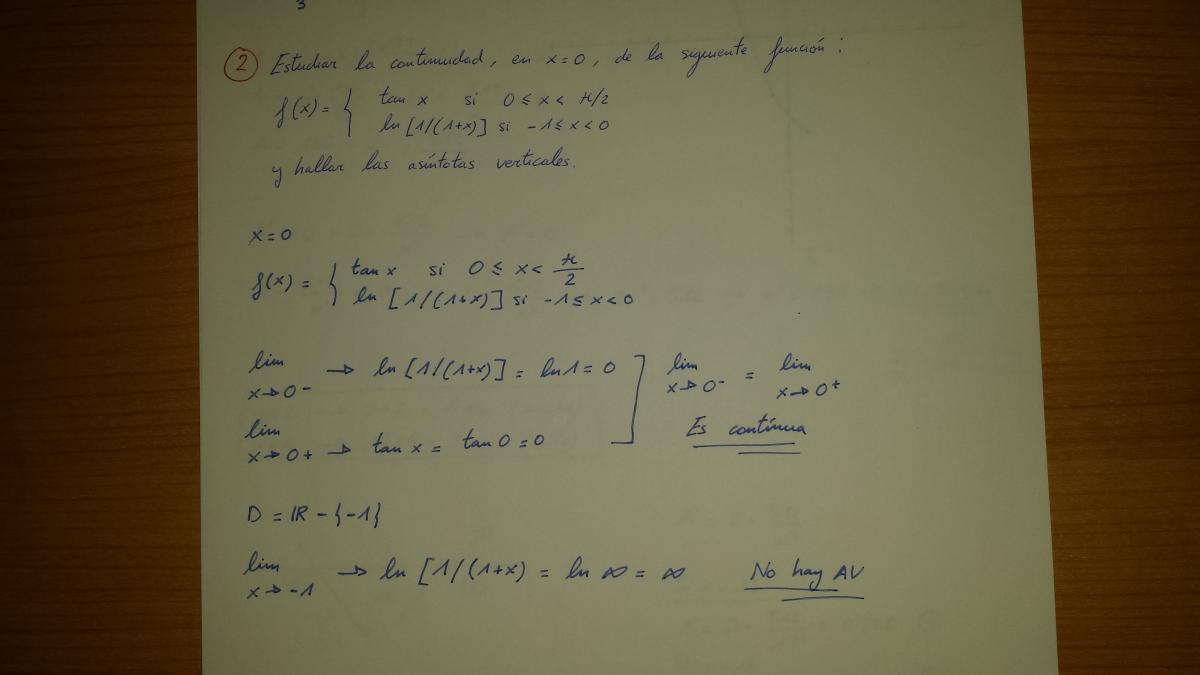 3
2 Estudiar la continuidad, en x=0, de la siguiente función:
f(x) = { tan x si 0 ≤ x < π/2
ln [1/(1+x)] si -1 ≤ x < 0
y hallar las asíntotas verticales.
x = 0
f(x) = { tan x si 0 ≤ x < π/2
ln [1/(1+x)] si -1 ≤ x < 0
lim x→0⁻ → ln [1/(1+x)] = ln 1 = 0 ] lim x→0⁻ = lim x→0⁺
lim x→0+ → tan x = tan 0 = 0 Es contínua
D = IR - {-1}
lim x→-1 → ln [1/(1+x) = ln ∞ = ∞ No hay AV